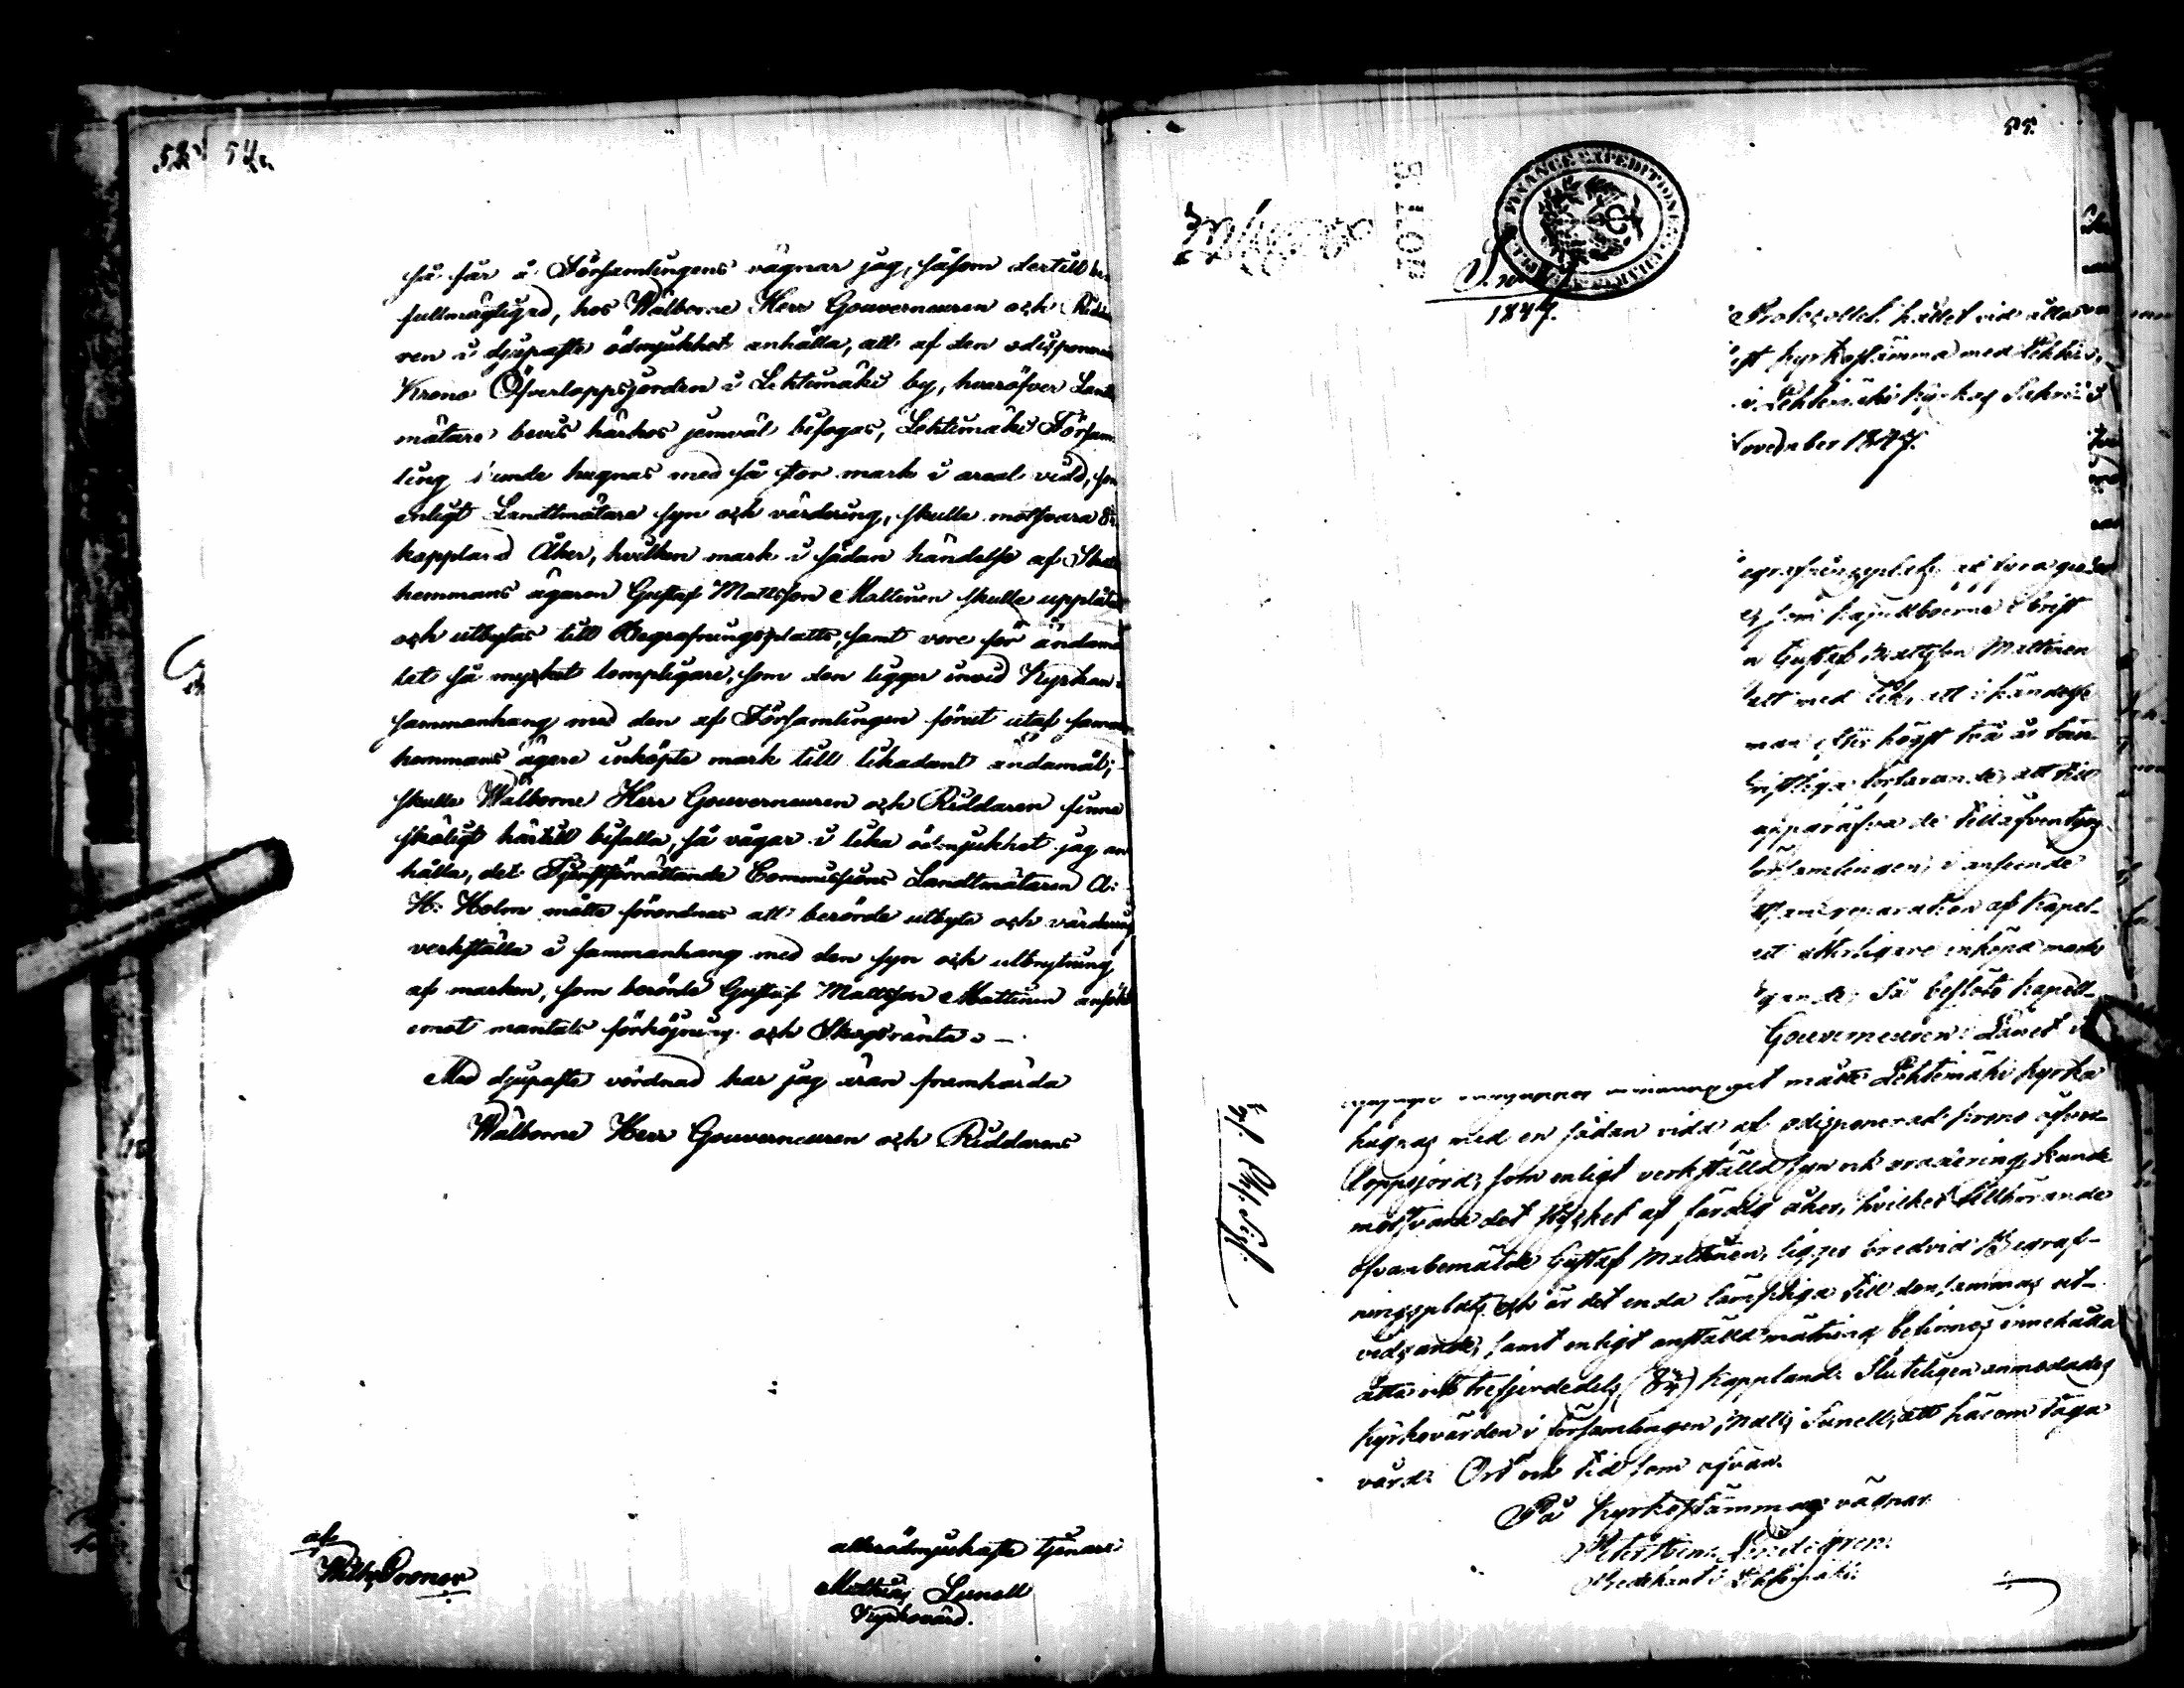 54.
så får å Församlingens vägnar jag, såsom dertill be-
fullmägtigad, hos Wälborne Herr Gouverneuren och Ridda
ren i djupaste ödmjukhet anhålla, att af den odisponerade
Krono Öfverloppsjorden i Lehtimäki by, hvaröfver Landt
mätare bevis härhos jemväl bifogas, Lehtimäki Försam
ling kunde hugnas med så stor mark i areal vidd, som
enligt Landtmätare syn och värdering, skulle motsvara 8¾
kappland Åker, hvilken mark i sådan händelse af Skatte
hemmans ägaren Gustaf Mattsson Mattinen skulle upplåtas
och utbytas till Begrafningsplatts, samt vore för ändamå
let så mycket lempligare, som den ligger invid Kyrkan i
sammanhang med den af Församlingen förut utaf samma
hemmans ägare inköpte mark till likadant ändamål;
skulle Wälborne Herr Gouverneuren och Riddaren finna
skäligt härtill bifalla, så vågar i lika ödmjukhet jag an
hålla, det Tjenstförrättande Commissions Landtmätaren A:
H: Holm måtte förordnas att berörde utbyte och värdering
verkställa i sammanhang med den syn och utbrytning
af marken, som berörde Gustaf Mattsson Mattinen ansökt
emot mantals förhöjning och Skogsränta. —
Med djupaste vördnad har jag äran framhärda
Wälborne Herr Gouverneuren och Riddarens
allerödmjukaste tjenare
Mathias Lunell
Kyrkovärd.
af
Wilh. Pooner
55.
FINANCE EXPEDITIONEN
1847.
Protocollet hållet vid allmän
kyrkostämma med Lehtim
i Lehtimäki kyrka och Sakris
November 1847.
egrafningsplats
som kapellboerne i brist
n Gustaf Mattsson Mattinen
att med lik, att i händelse
man efter högst två år
kristliga förfarande, att till
uppgräfva de till äfventyrs
församlingen, i anseende
och reparation af Kapel-
ett ytterligare inköpa mark
gande; Så beslöto Kapell-
Gouverneuren i Länet
måtte Lehtimäki kyrka
hugnas med en sådan vidd af odisponerad krono öfver-
loppsjord, som enligt verkställd syn och gradering kunde
motsvara det stycket af färdig åker, hvilket tillhörande
ofvanbemälde Gustaf Mattinen, ligger bredvid Begraf-
ningsplats och är det enda lämpliga till densammas ut-
vidgande, samt enligt anställd mätning befinnes innehålla
åtta och trefjerdedels (8¾) kappland. Sluteligen anmodades
kyrkovärden i församlingen, Matts Lunell, att härom draga
vård. Ort och tid som ofvan.
På Kyrkostämmans vägnar
Predikant i Lehtimäki.